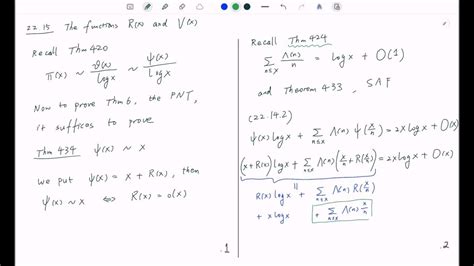 22.15 The functions R(x) and V(x)
Recall Thm 420
π(x) ~ ϑ(x)/log x ~ ψ(x)/log x
Now to prove Thm 6, the PNT,
it suffices to prove
Thm 434 ψ(x) ~ x
we put ψ(x) = x + R(x), then
ψ(x) ~ x ⇔ R(x) = o(x)
1
Recall Thm 424
∑_{n≤x} Λ(n)/n = log x + O(1)
and Theorem 433, SAF
(22.14.2)
ψ(x) log x + ∑_{n≤x} Λ(n) ψ(x/n) = 2x log x + O(x)
(x + R(x)) log x + ∑_{n≤x} Λ(n) (x/n + R(x/n)) = 2x log x + O(x)
R(x) log x + ∑_{n≤x} Λ(n) R(x/n)
+ x log x + ∑_{n≤x} Λ(n) x/n
2